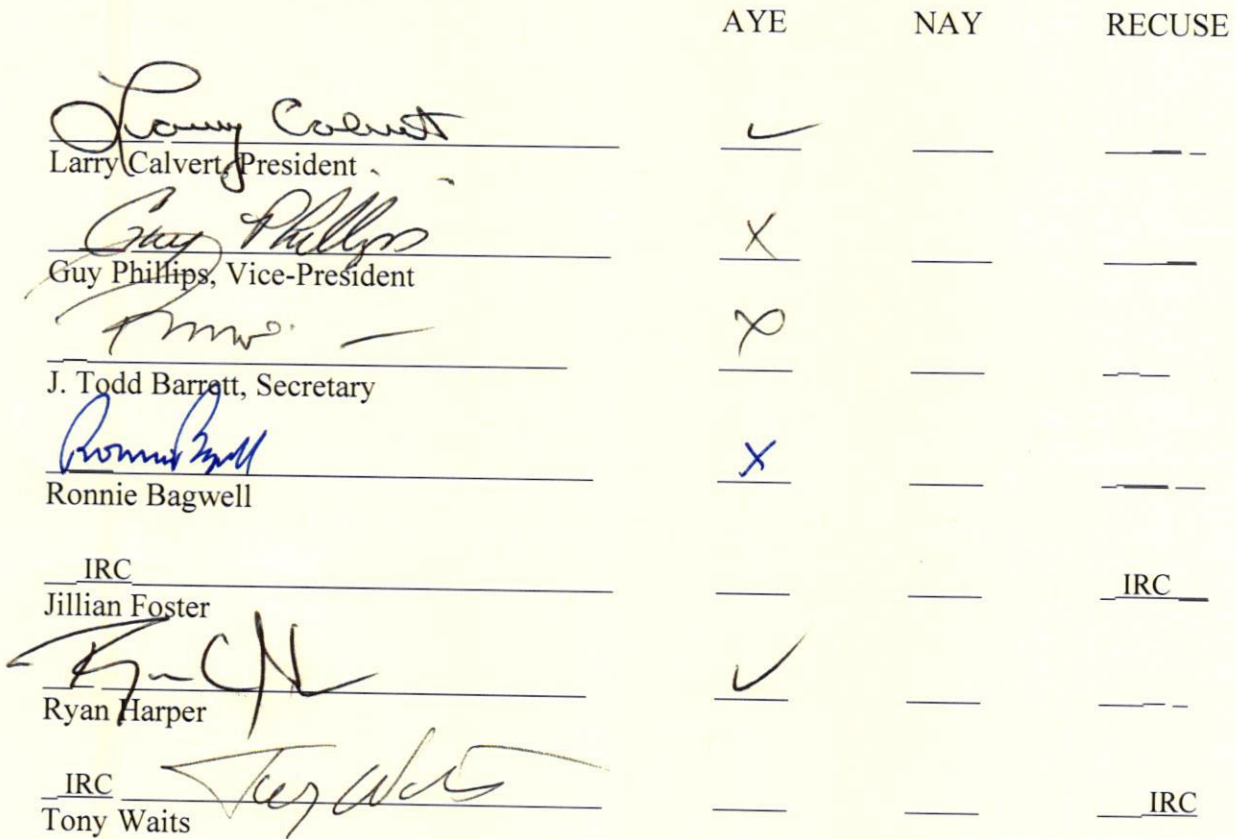 AYE NAY RECUSE
Larry Calvert ✓
Larry Calvert, President
Guy Phillips X
Guy Phillips, Vice-President
X
J. Todd Barrett, Secretary
Ronnie Bagwell X
Ronnie Bagwell
IRC IRC
Jillian Foster
✓
Ryan Harper
IRC Tony Waits IRC
Tony Waits